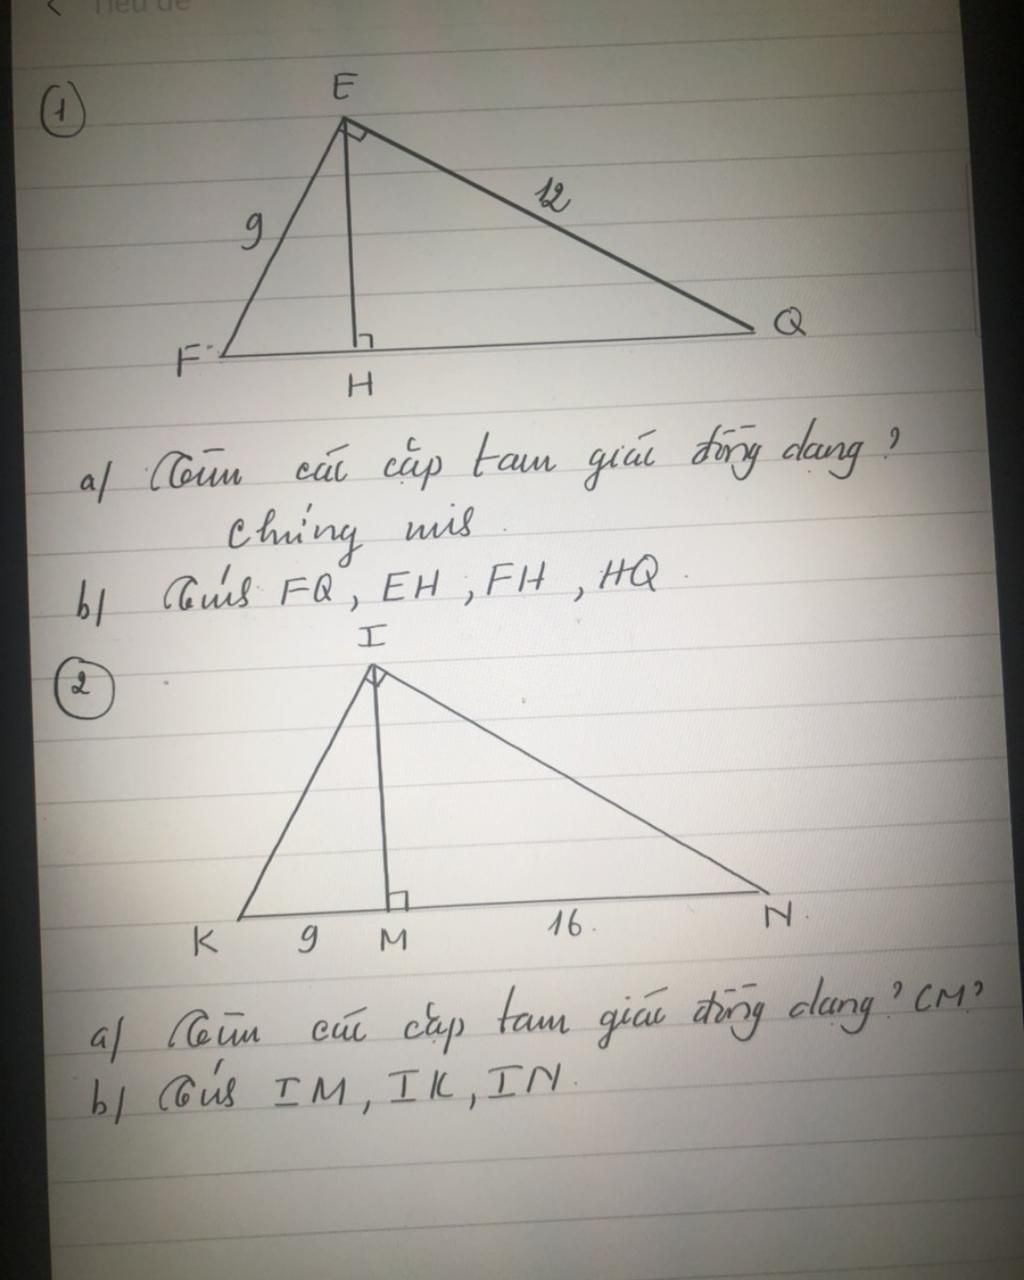 < Tiêu đề
1
E
9
12
F
H
Q
a/ Tìm các cặp tam giác đồng dạng?
Chứng mis
b/ Tính FQ, EH, FH, HQ.
I
2
K 9 M 16. N.
a/ Tìm các cặp tam giác đồng dạng? CM?
b/ Tính IM, IK, IN.